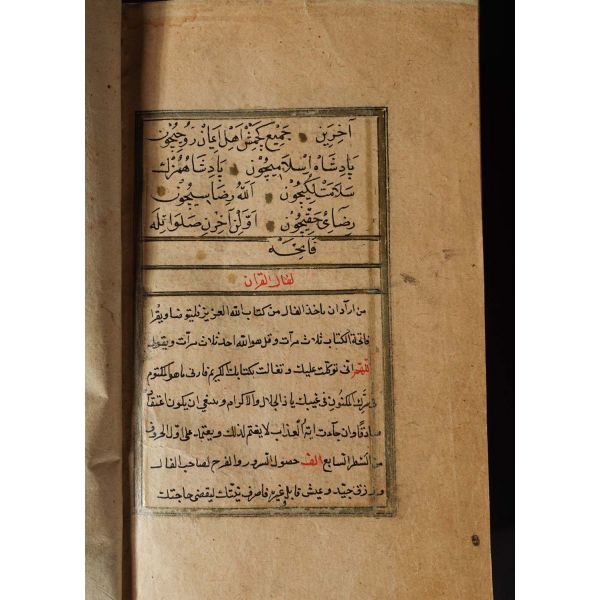 آخرين جميع كچمش اهل ايمان روحيچون
پادشاه اسلاميچون پادشاهمزك
سلامتلكيچون الله رضاسيچون
رضاى حقيچون اولن آخرن صلواتله
فاتحه
لفال القرآن
من اراد ان ياخذ الفال من كتاب الله العزيز فليتوضا ويقرا
فاتحة الكتاب ثلاث مرات وقل هو الله احد ثلاث مرات ويقول
اللهم انى توكلت عليك وتفالت بكتابك الكريم فارنى ما هو المكتوم
فى سرك المكنون فى غيبك ياذ الجلال والاكرام وينبغى ان يكون اعتقاده
صادقا وان جاءت اية العذاب لا يغتم لذلك ويعتمد على اول الحروف
من السطر السابع الف حصول السرور والفرح لصاحب الفال
ورزق جيد وعيش قابل غيره فاصرف نيتك ليقضى حاجتك